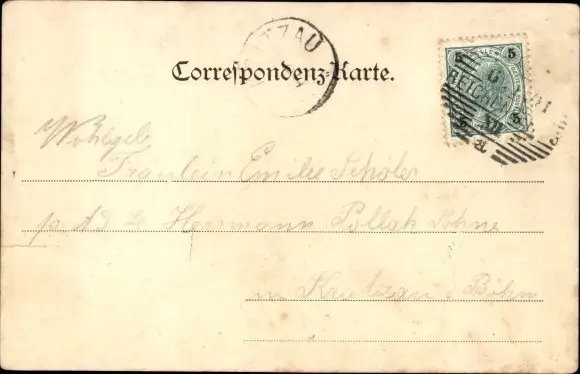 TZAU
Correspondenz-Karte.
5 5
REICHEN
01
5 5
a
Wohlgeb
Fräulein Emilie Schöler
p. Ad. Herrmann Pollak Söhne
in Kratzau Böhm